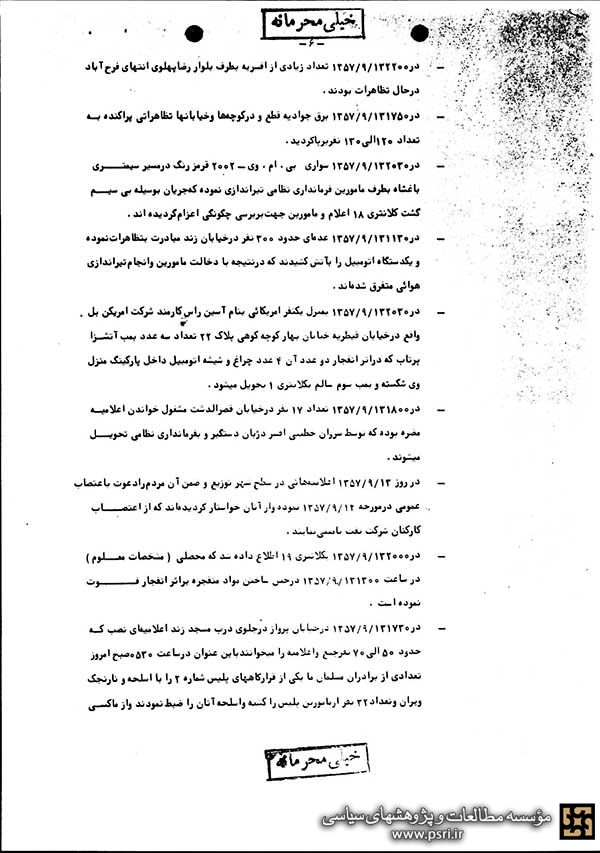 خیلی محرمانه
-۶-
- در۱۳۵۷/۹/۱۳۲۲۰۰ تعداد زیادی از افسریه بطرف بلوار رضاپهلوی انتهای فرح آباد
درحال تظاهرات بودند .
- در۱۳۵۷/۹/۱۳۱۷۵۰ برق جوادیه قطع و درکوچه‌ها وخیابانها تظاهراتی پراکنده به
تعداد ۱۲۰الی ۱۳۰ نفربرپاگردید .
- در۱۳۵۷/۹/۱۳۲۰۳۰ سواری بی . ام . وی - ۲۰۰۲ قرمز رنگ درمسیر سیمتری
باغشاه بطرف مامورین فرمانداری نظامی تیراندازی نموده که‌جریان بوسیله بی سیم
گشت کلانتری ۱۸ اعلام و مامورین جهت‌بررسی چگونگی اعزام‌گردیده اند .
- در۱۳۵۷/۹/۱۳۱۱۳۰ عده‌ای حدود ۳۰۰ نفر درخیابان زند مبادرت بتظاهرات‌نموده
و یکدستگاه اتومبیل را بآتش کشیدند که درنتیجه با دخالت مامورین وانجام‌تیراندازی
هوائی متفرق شده‌اند .
- در۱۳۵۷/۹/۱۳۲۰۳۰ بمنزل یکنفر امریکائی بنام آسین راس کارمند شرکت امریکن بل .
واقع درخیابان قیطریه خیابان بهار کوچه کوهی پلاک ۲۲ تعداد سه عدد بمب آتشزا
پرتاب که دراثر انفجار دو عدد آن ۴ عدد چراغ و شیشه اتومبیل داخل پارکینگ منزل
وی شکسته و بمب سوم سالم بکلانتری ۱ تحویل میشود .
- در۱۳۵۷/۹/۱۳۱۸۰۰ تعداد ۱۷ نفر درخیابان قصرالدشت مشغول خواندن اعلامیه
مضره بوده که توسط سروان خطیبی افسر دژبان دستگیر و بفرمانداری نظامی تحویل
میشوند .
- در روز ۱۳۵۷/۹/۱۳ اعلامیه‌هائی در سطح شهر توزیع و ضمن آن مردم‌رادعوت باعتصاب
عمومی درمورخه ۱۳۵۷/۹/۱۴ نموده واز آنان خواستار گردیده‌اند که از اعتصاب
کارکنان شرکت نفت نمایند .
- در۱۳۵۷/۹/۱۳۲۰۰۰ بکلانتری ۱۹ اطلاع داده شد که محصلی ( مشخصات معلوم )
در ساعت ۱۳۵۷/۹/۱۳۱۳۰۰ درحین ساختن مواد منفجره براثر انفجار فوت
نموده است .
- در۱۳۵۷/۹/۱۳۱۷۳۰ درخیابان پرواز درجلوی درب مسجد زند اعلامیه‌ای نصب که
حدود ۵۰ الی ۷۰ نفرجمع واعلامیه را میخوانندباین عنوان درساعت ۰۵۳۰صبح امروز
تعدادی از برادران مسلمان ما یکی از قرارگاههای پلیس شماره ۲ را با اسلحه و نارنجک
ویران وتعداد۳۲ نفر ازمامورین پلیس را کشته واسلحه آنان را ضبط نمودند واز ماکسی
خیلی محرمانه
مؤسسه مطالعات و پژوهشهای سیاسی
www.psri.ir